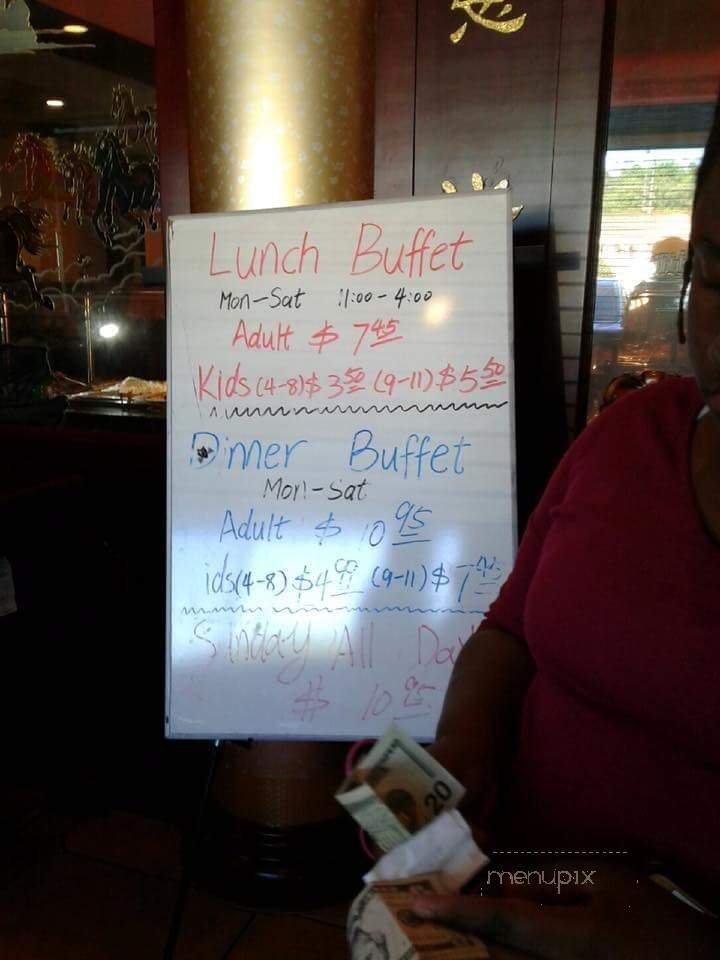 Lunch Buffet
Mon-Sat 11:00-4:00
Adult $ 7 45
Kids (4-8) $ 3 50 (9-11) $ 5 50
Dinner Buffet
Mon-Sat
Adult $ 10 95
ids (4-8) $ 4 (9-11) $ 7
Sunday All Day
$ 10 95
20
menupix